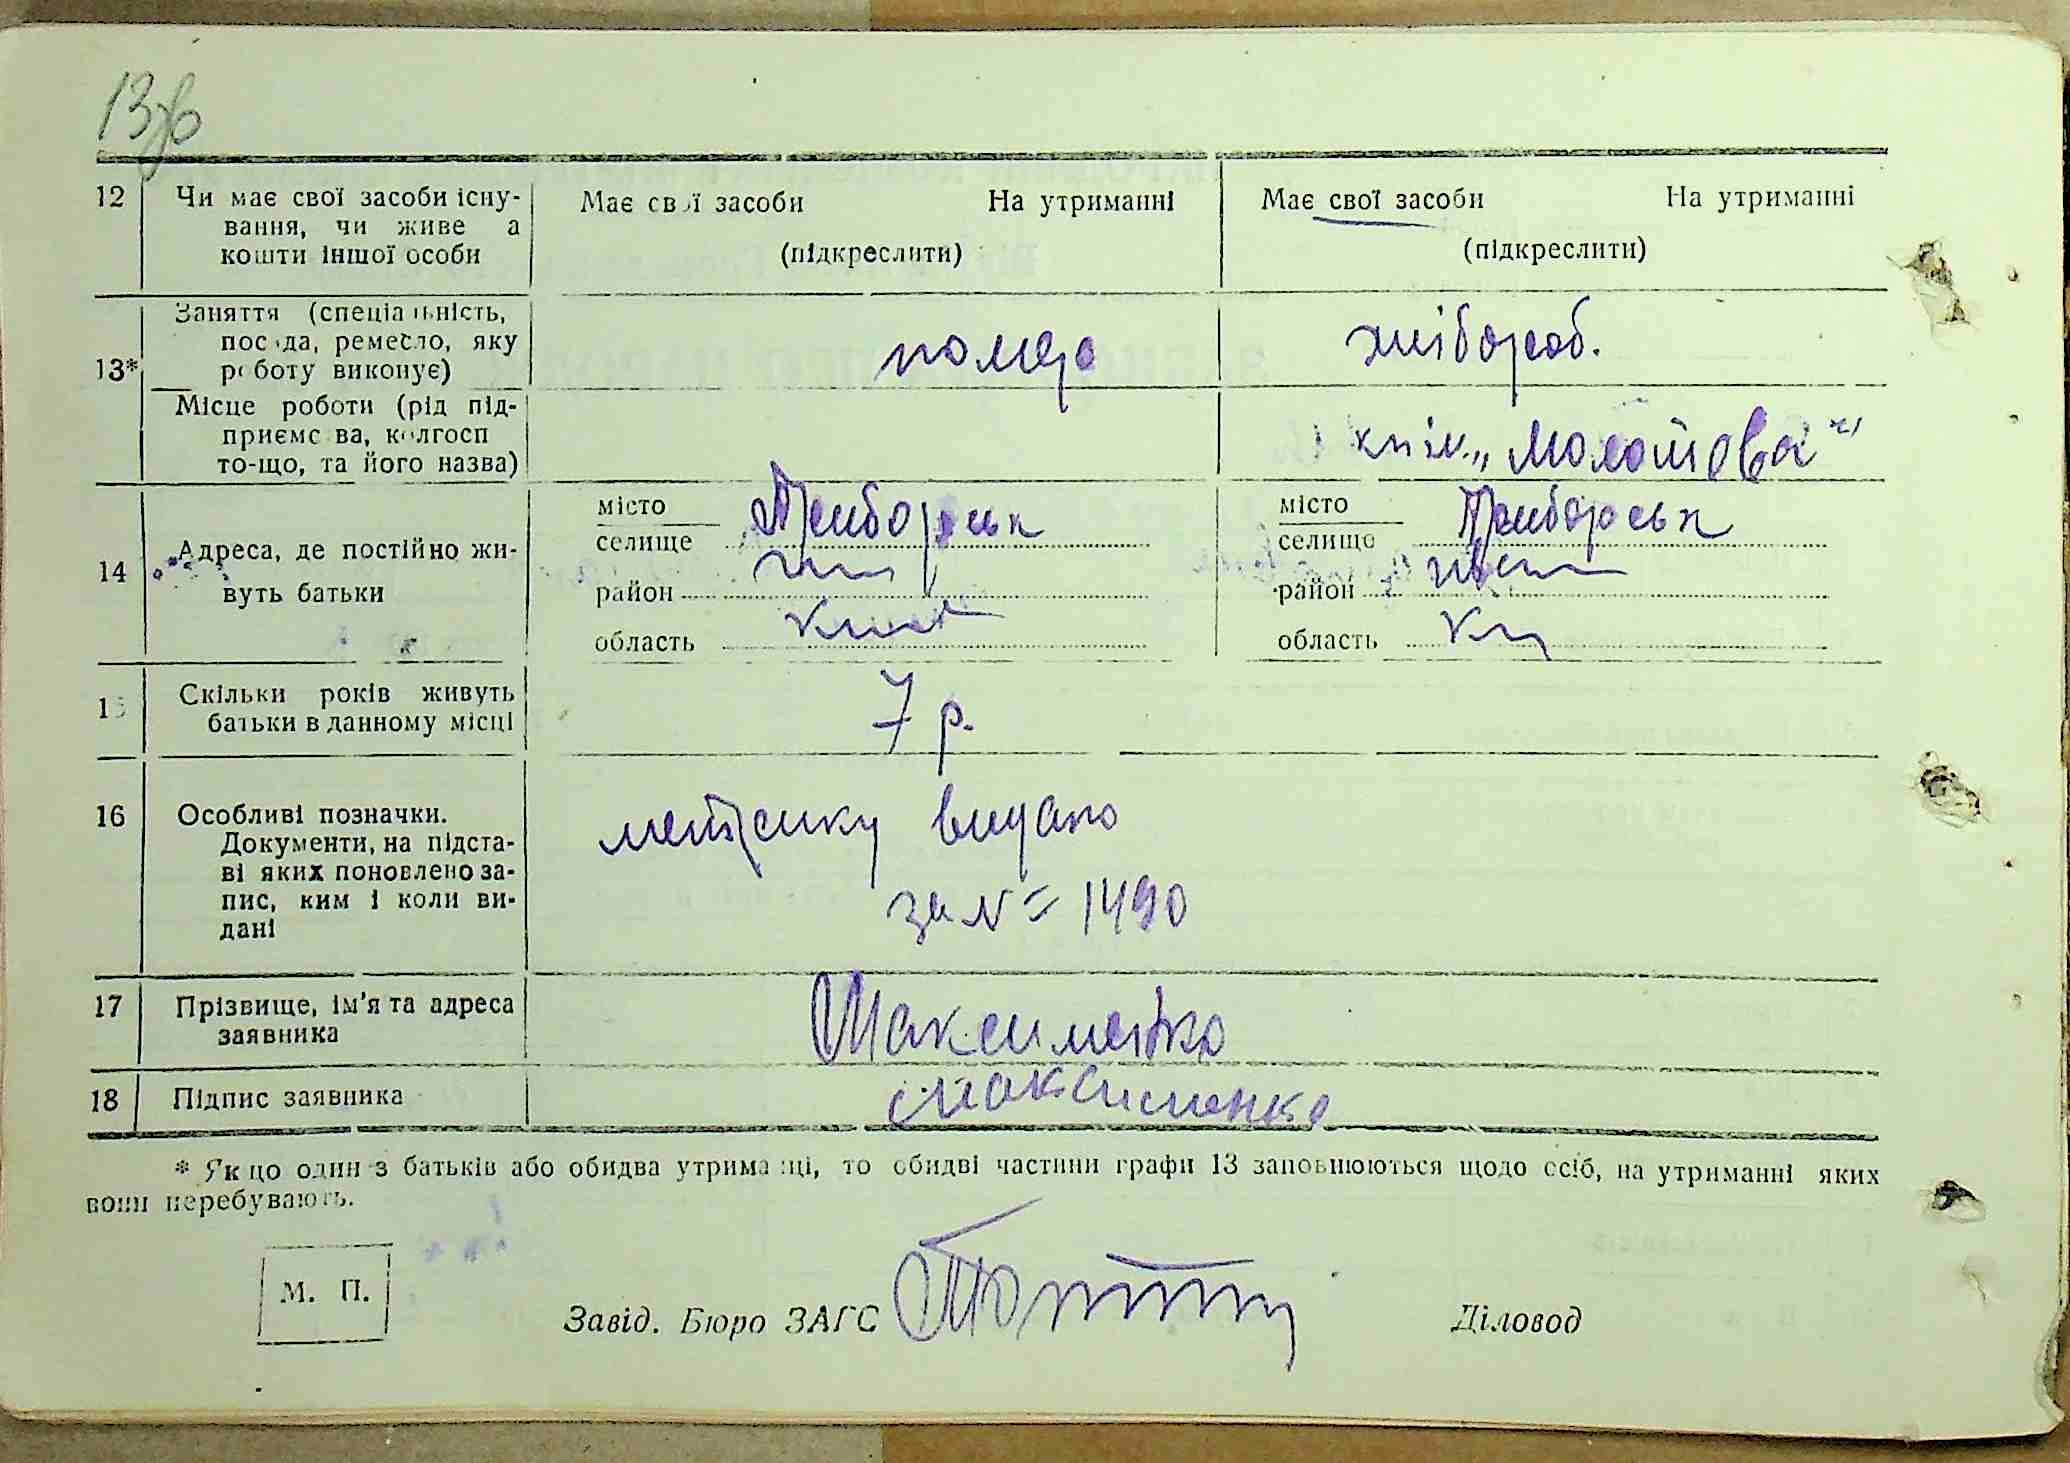 13зв
12 Чи має свої засоби існу-
вання, чи живе а
кошти іншої особи
Має свої засоби На утриманні
(підкреслити)
Має свої засоби На утриманні
(підкреслити)
13* Заняття (спеціальність,
посада, ремесло, яку
роботу виконує)
помер
хлібороб.
Місце роботи (рід під-
приємства, колгосп
то-що, та його назва)
"Молотова"
14 Адреса, де постійно жи-
вуть батьки
місто
селище Приборськ
район
область
місто
селище Приборськ
район
область
15 Скільки років живуть
батьки в данному місці
7 р.
16 Особливі позначки.
Документи, на підста-
ві яких поновлено за-
пис, ким і коли ви-
дані
метрику видано
за № 1490
17 Прізвище, ім'я та адреса
заявника
Максименко
18 Підпис заявника
Максименко
* Якщо один з батьків або обидва утриманці, то обидві частини графи 13 заповнюються щодо осіб, на утриманні яких
вони перебувають.
М. П.
Завід. Бюро ЗАГС
Діловод